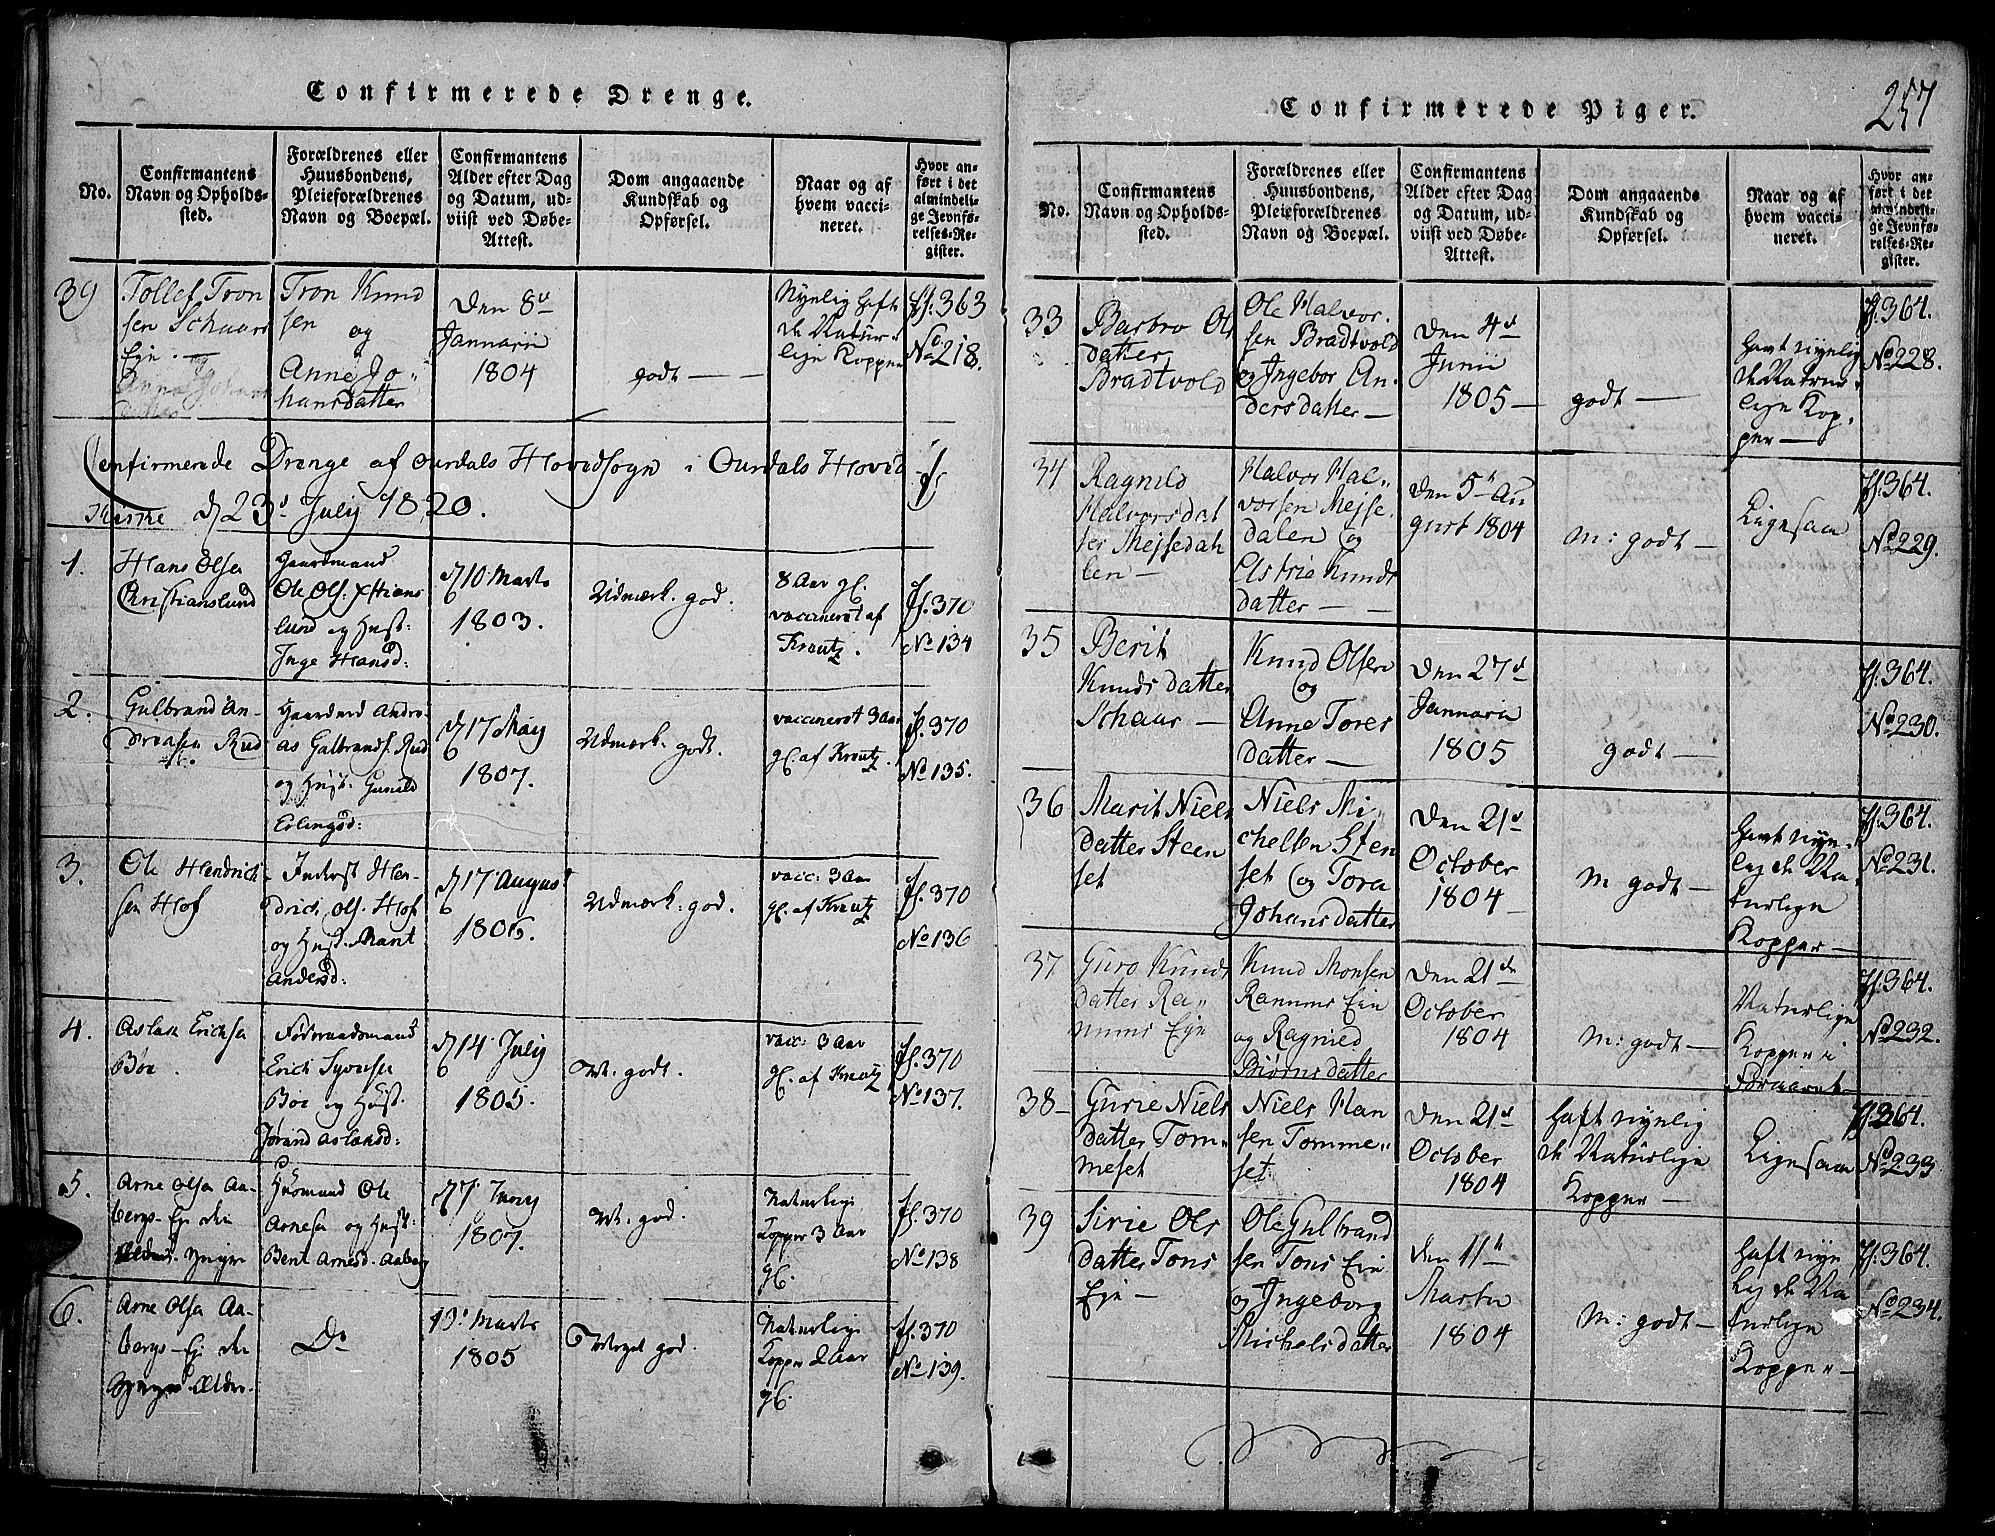 Confirmerede Drenge.
No.
Confirmantens
Navn og Opholds-
sted.
Forældrenes eller
Huusbondens,
Pleieforældrenes
Navn og Boepæl.
Confirmantens
Alder efter Dag
og Datum, ud-
viist ved Døbe-
Attest.
Dom angaaende
Kundskab og
Opførsel.
Naar og af
hvem vacci-
neret.
Hvor an-
ført i det
almindeli-
ge Jevnfø-
relses-Re-
gister.
39
Tollef Tron
sen Schaars
Eje. —
Tron Knud
sen
og
Anne Jo"
hansdatter
Den 8d
Januarii
1804
godt —
Nylig haft
de Natur-
lige Kopper
ff. 363
No 218.
Confirmerede Drenge af Ourdals Hovedsogn i Ourdals Hoved
Kirke d 23d July 1820.
1.
Hans Olsen
Christianslund
Gaardmand
Ole Ols: Xstians
lund og Hust:
Inge Hansd:
d 10 Marts
1803.
Udmærk. god:
8 Aar gl.
vaccineret af
Kreutz.
ff. 370
No 134
2.
Gulbrand An-
dreasen Rud
Gaardmd Andre-
as Gulbrands. Rud
og Hust: Gunild
Erlingsd:
d 17 May
1807.
Udmærk. godt.
vaccineret 3 Aar
gl. af Kreutz.
ff. 370
No 135.
3.
Ole Hendrich
sen Hof
Inderst Hen-
drich Ols. Hof
og Hust. Marit
Andersd:
d 17 August
1806.
Udmærk: god.
vacc: 3 Aar
gl. af Kreutz
ff. 370
No 136
4.
Aslak Erichsen
Bøe.
Føderaadsmand
Erich Syversen
Bøe og Hust.
Jørand Aslaksd:
d 14 July
1805.
M. godt.
vacc: 3 Aar
gl. af Kreutz
ff. 370
No 137.
5.
Arne Olsen Aa-
bergs-Eje den
Yngre
Huusmand Ole
Arnesen og Hust:
Berit Arnesd. Aaberg
d 7 Juny
1807.
M. god.
Naturlige
Kopper 3 Aar
gl.
ff. 370
No 138
6.
Arne Olsen Aa-
bergs-Eje den
Ældre.
Do
13 Marts
1805
Meget god.
Naturlige
Kopper 2 Aar
gl.
ff. 370
No 139.
257
Confirmerede Piger.
No.
Confirmantens
Navn og Opholds-
sted.
Forældrenes eller
Huusbondens,
Pleieforældrenes
Navn og Boepæl.
Confirmantens
Alder efter Dag
og Datum, ud-
viist ved Døbe-
Attest.
Dom angaaende
Kundskab og
Opførsel.
Naar og af
hvem vacci-
neret.
Hvor an-
ført i det
almindeli-
ge Jevnfø-
relses-Re-
gister.
33
Barbro Ols
datter
Bradtvold
Ole Halvor-
sen Bradtvold
og Ingebor An-
dersdatter —
Den 4d
Junii
1805 —
godt —
Havt nylig
de Natur-
lige Kop-
per —
ff. 364.
No 228.
34
Ragnild
Halvorsdat
ter Mejsedah
len —
Halvor Hal"
vorsen Mejse
dalen og
Astrie Knuds
datter —
Den 5h Au
gust 1804
m: godt —
Ligesaa
ff. 364.
No 229.
35
Berit
Knuds datter
Schaar —
Knud Olsen
og
Anne Tores
datter —
Den 27d
Januarii
1805
godt —
ff. 364.
No 230.
36
Marit Niels
datter Steen
set
Niels Mi
chelsen Sten
set og Tora
Johansdatter
Den 21d
October
1804 —
m godt —
Havt nyn-
lig de Na-
turlige
Kopper —
ff. 364.
No 231.
37
Guro Knuds
datter Ra"
nums Eje
Knud Monsen
Ranums Eje
og Ragnild
Biørnsdatter
Den 21de
October
1804
m: godt —
Naturlige
Kopper i
ff. 364.
No 232.
38 —
Gurie Niels
datter Tom"
meset
Niels Han
sen Tomme"
set.
Den 21d
October
1804
Haft nynlig
de Naturlige
Kopper —
Ligesaa
ff. 364.
No 233
39
Sirie Ols
datter Tons
Eje —
Ole Gulbrand
sen Tons Eje
og Ingeborg
Michelsdatter
Den 11h
Martii
1804
m: godt —
Haft nyn
lig de Na
turlige
Kopper —
ff. 364.
No 234.